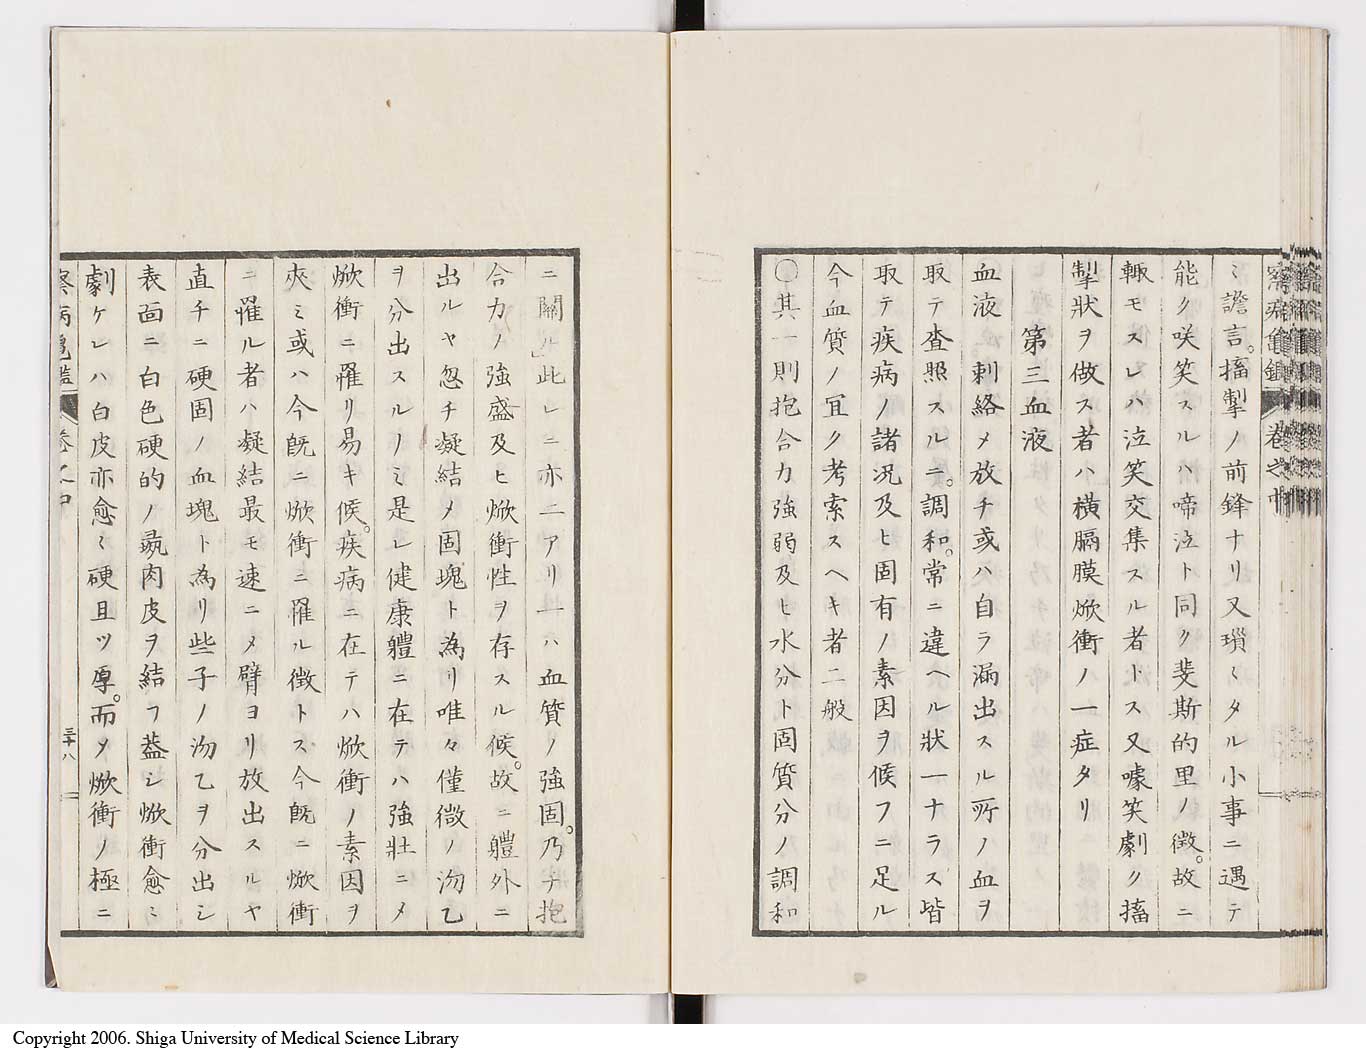 察病亀鑑 卷之中
ミ譫言。搐掣ノ前鋒ナリ又瑣ミタル小事ニ遇テ
能ク咲笑スルハ啼泣ト同ク斐斯的里ノ徴。故ニ
輙モスレハ泣笑交集スル者トス又噱笑劇ク搐
掣狀ヲ做ス者ハ橫膈膜焮衝ノ一症タリ
第三血液
血液刺絡乄放チ或ハ自ラ漏出スル所ノ血ヲ
取テ査照スルニ。調和。常ニ違ヘル狀一ナラス皆
取テ疾病ノ諸況及ヒ固有ノ素因ヲ候フニ足ル
今血質ノ冝ク考索スヘキ者二般
○其一則抱合力強弱及ヒ水分ト固質分ノ調和
ニ關ル」此レニ亦二アリ一ハ血質ノ強固。乃チ抱
合力ノ強盛及ヒ焮衝性ヲ存スル候。故ニ軆外ニ
出ルヤ忽チ凝結乄固塊ト為リ唯々僅微ノ沕乙
ヲ分出スルノミ是レ健康軆ニ在テハ強壯ニ乄
焮衝ニ罹リ易キ候。疾病ニ在テハ焮衝ノ素因ヲ
夾ミ或ハ今旣ニ焮衝ニ罹ル徴トス今旣ニ焮衝
ニ罹ル者ハ凝結最モ速ニ乄臂ヨリ放出スルヤ
直チニ硬固ノ血塊ト為リ些子ノ沕乙ヲ分出シ
表面ニ白色硬的ノ豌肉皮ヲ結フ葢シ焮衝愈ミ
劇ケレハ白皮亦愈ミ硬且ツ厚。而乄焮衝ノ極ニ
察病亀鑑 卷之中 三十八
Copyright 2006. Shiga University of Medical Science Library